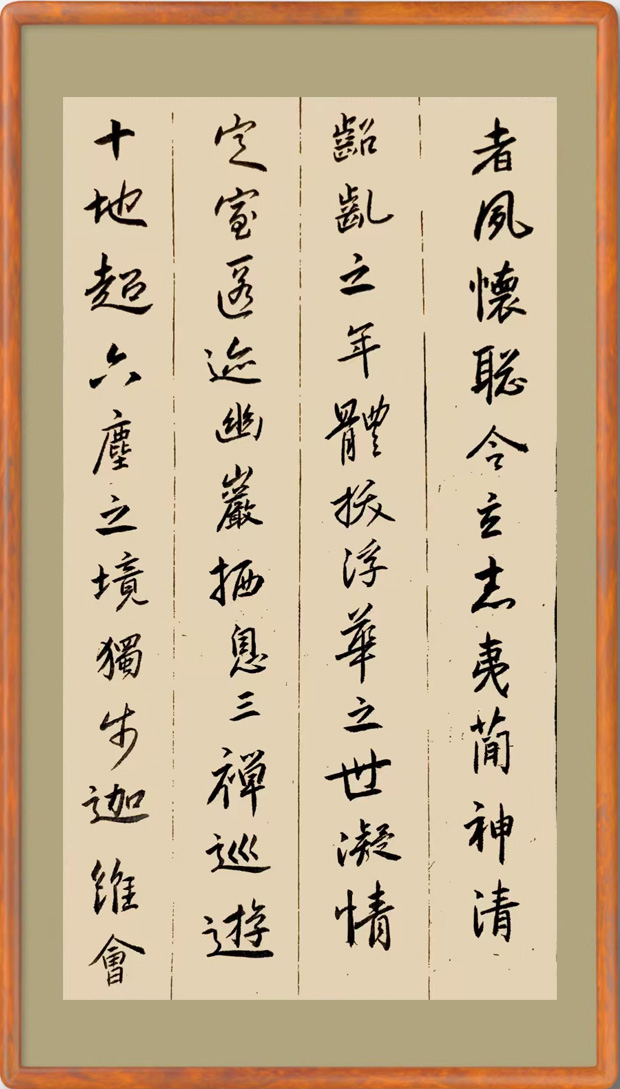 者夙懷聡令立志夷簡神清
齠齔之年體拔浮華之世凝情
定室匿迹幽巖栖息三禪巡遊
十地超六塵之境獨步迦維會